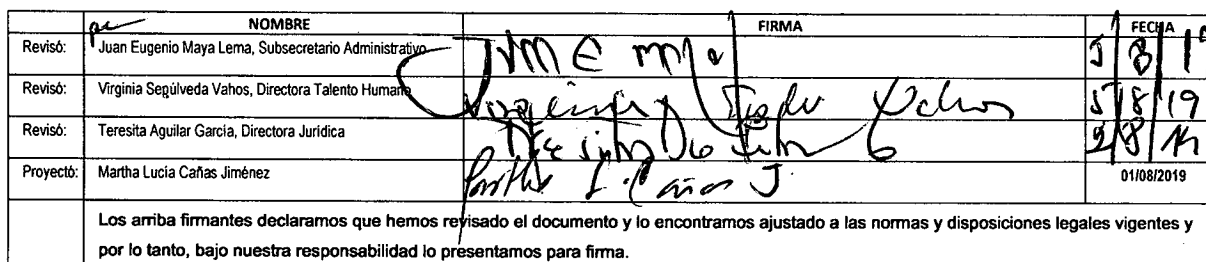 NOMBRE FIRMA FECHA
Revisó: Juan Eugenio Maya Lema, Subsecretario Administrativo
Revisó: Virginia Sepúlveda Vahos, Directora Talento Humano 5/8/19
Revisó: Teresita Aguilar García, Directora Jurídica
Proyectó: Martha Lucía Cañas Jiménez Martha L. Cañas J. 01/08/2019
Los arriba firmantes declaramos que hemos revisado el documento y lo encontramos ajustado a las normas y disposiciones legales vigentes y
por lo tanto, bajo nuestra responsabilidad lo presentamos para firma.